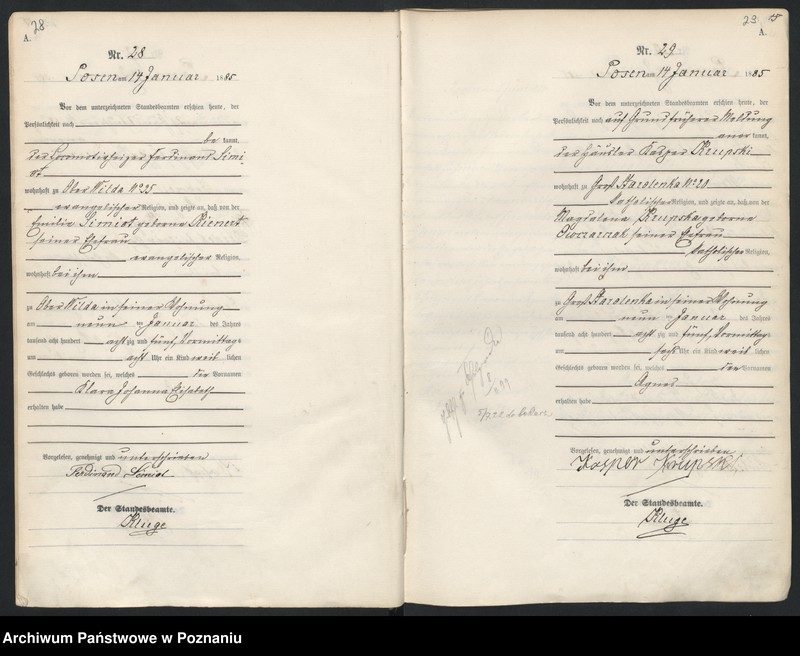 28
A.
Nr. 28
Posen am 14 Januar 1885
Vor dem unterzeichneten Standesbeamten erschien heute, der
Persönlichkeit nach
be kannt,
der Locomotivheizer Ferdinand Simi
ot
wohnhaft zu Ober Wilda No 25
evangelischer Religion, und zeigte an, daß von der
Emilie Simiot geborne Kienert
seiner Ehefrau
evangelischer Religion,
wohnhaft bei ihm
zu Ober Wilda in seiner Wohnung
am neun ten Januar des Jahres
tausend acht hundert acht zig und fünf, Vormittags
um acht Uhr ein Kind weib lichen
Geschlechts geboren worden sei, welches die Vornamen
Klara Johanna Elisabeth
erhalten habe
Vorgelesen, genehmigt und unterschrieben
Ferdinand Simiot
Der Standesbeamte.
Kluge
29 15
A.
Nr. 29
Posen am 14 Januar 1885
Vor dem unterzeichneten Standesbeamten erschien heute, der
Persönlichkeit nach auf Grund früherer Meldung
aner kannt,
der Häusler Kasper Krupski
wohnhaft zu Groß Starolenka No 20
katholischer Religion, und zeigte an, daß von der
Magdalena Krupska geborne
seiner Ehefrau
katholischer Religion,
wohnhaft bei ihm
zu Groß Starolenka in seiner Wohnung
am neun ten Januar des Jahres
tausend acht hundert acht zig und fünf, Vormittags
um sechs Uhr ein Kind weib lichen
Geschlechts geboren worden sei, welches den Vornamen
Agnes
erhalten habe
Vorgelesen, genehmigt und unterschrieben
Kasper Krupski
Der Standesbeamte.
Kluge
Archiwum Państwowe w Poznaniu